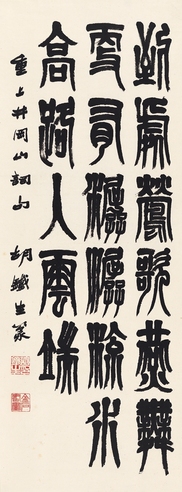 到處鶯歌燕舞
更有潺潺流水
高路入雲端
重上井岡山詞句 胡鐵生篆